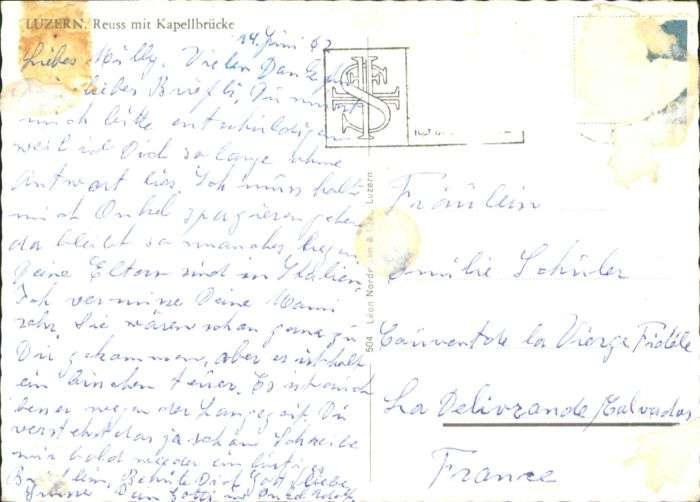 LUZERN, Reuss mit Kapellbrücke
14. Juni 62
Liebes Milly. Vielen Dank für
liebes Briefli, Du musst
mich bitte entschuldigen
weil ich Dich so lange ohne
Antwort lies. Ich muss halt
mit Onkel spazieren gehen
da bleibt so manches liegen
Deine Eltern sind in Italien,
Ich vermisse Deine Mami
sehr. Sie wären schon gerne zu
Dir gekommen, aber es ist halt
ein bischen teuer. Es ist auch
besser wegen der Langezeit. Du
verstehst das ja schon. Schreibe
mir bald wieder ein
Behüte Dich Gott. Liebe
Grüsse Dein Gotti und Onkel
504 Léon Luzern
Fräulein
Emilie Schüler
Couvent de la Vierge Fidèle
La Delivrande/Calvados
France